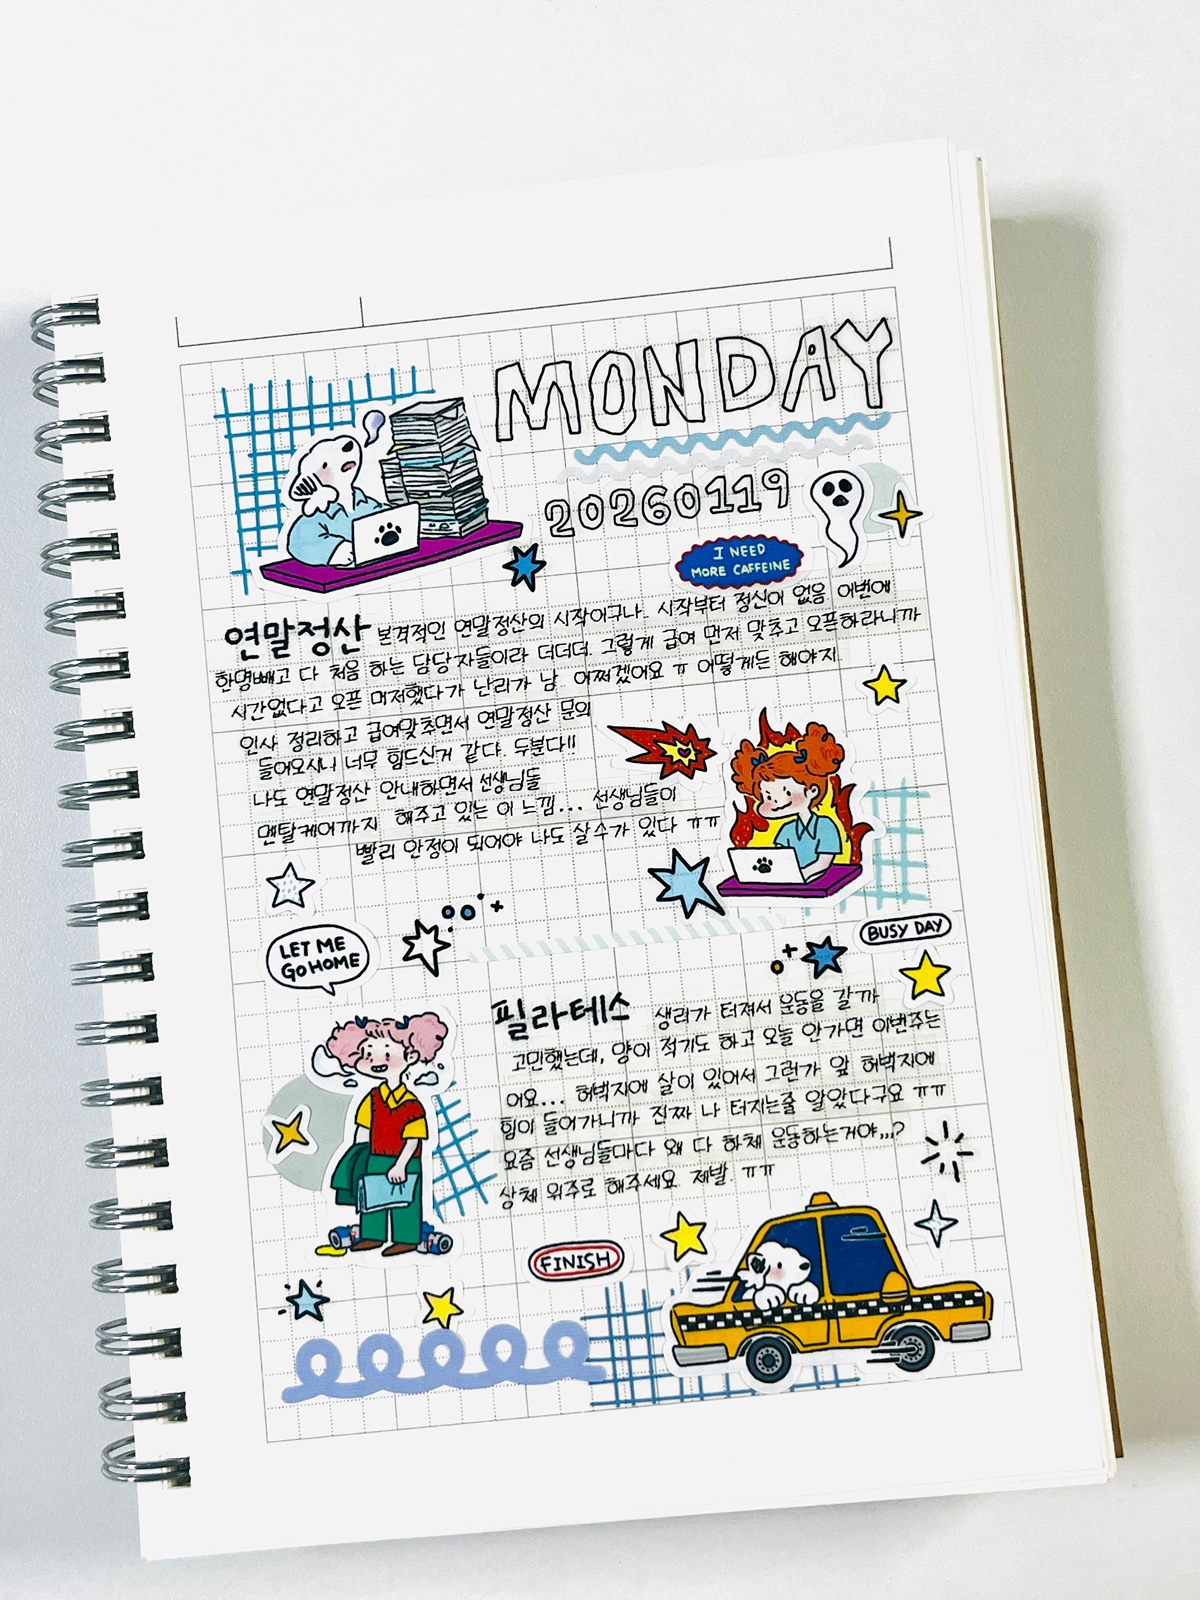 MONDAY
20260119
I NEED
MORE CAFFEINE
연말정산 본격적인 연말정산의 시작이구나.. 시작부터 정신이 없음 이번에
한명빼고 다 처음 하는 담당자들이라 더더더. 그렇게 급여 먼저 맞추고 오픈하라니까
시간없다고 오픈 머저했다가 난리가 남. 어쩌겠어요 ㅠ 어떻게든 해야지.
인사 정리하고 급여맞추면서 연말정산 문의
들어오시니 너무 힘드신거 같다. 두분다!!
나도 연말정산 안내하면서 선생님들
멘탈케어까지 해주고 있는 이 느낌... 선생님들이
빨리 안정이 되어야 나도 살수가 있다 ㅠㅠ
LET ME
GO HOME
BUSY DAY
필라테스 생리가 터져서 운동을 갈까
고민했는데, 양이 적기도 하고 오늘 안가면 이번주는
어요... 허벅지에 살이 있어서 그런가 앞 허벅지에
힘이 들어가니까 진짜 나 터지는줄 알았다구요 ㅠㅠ
요즘 선생님들마다 왜 다 하체 운동하는거야,,,?
상체 위주로 해주세요. 제발. ㅠㅠ
FINISH